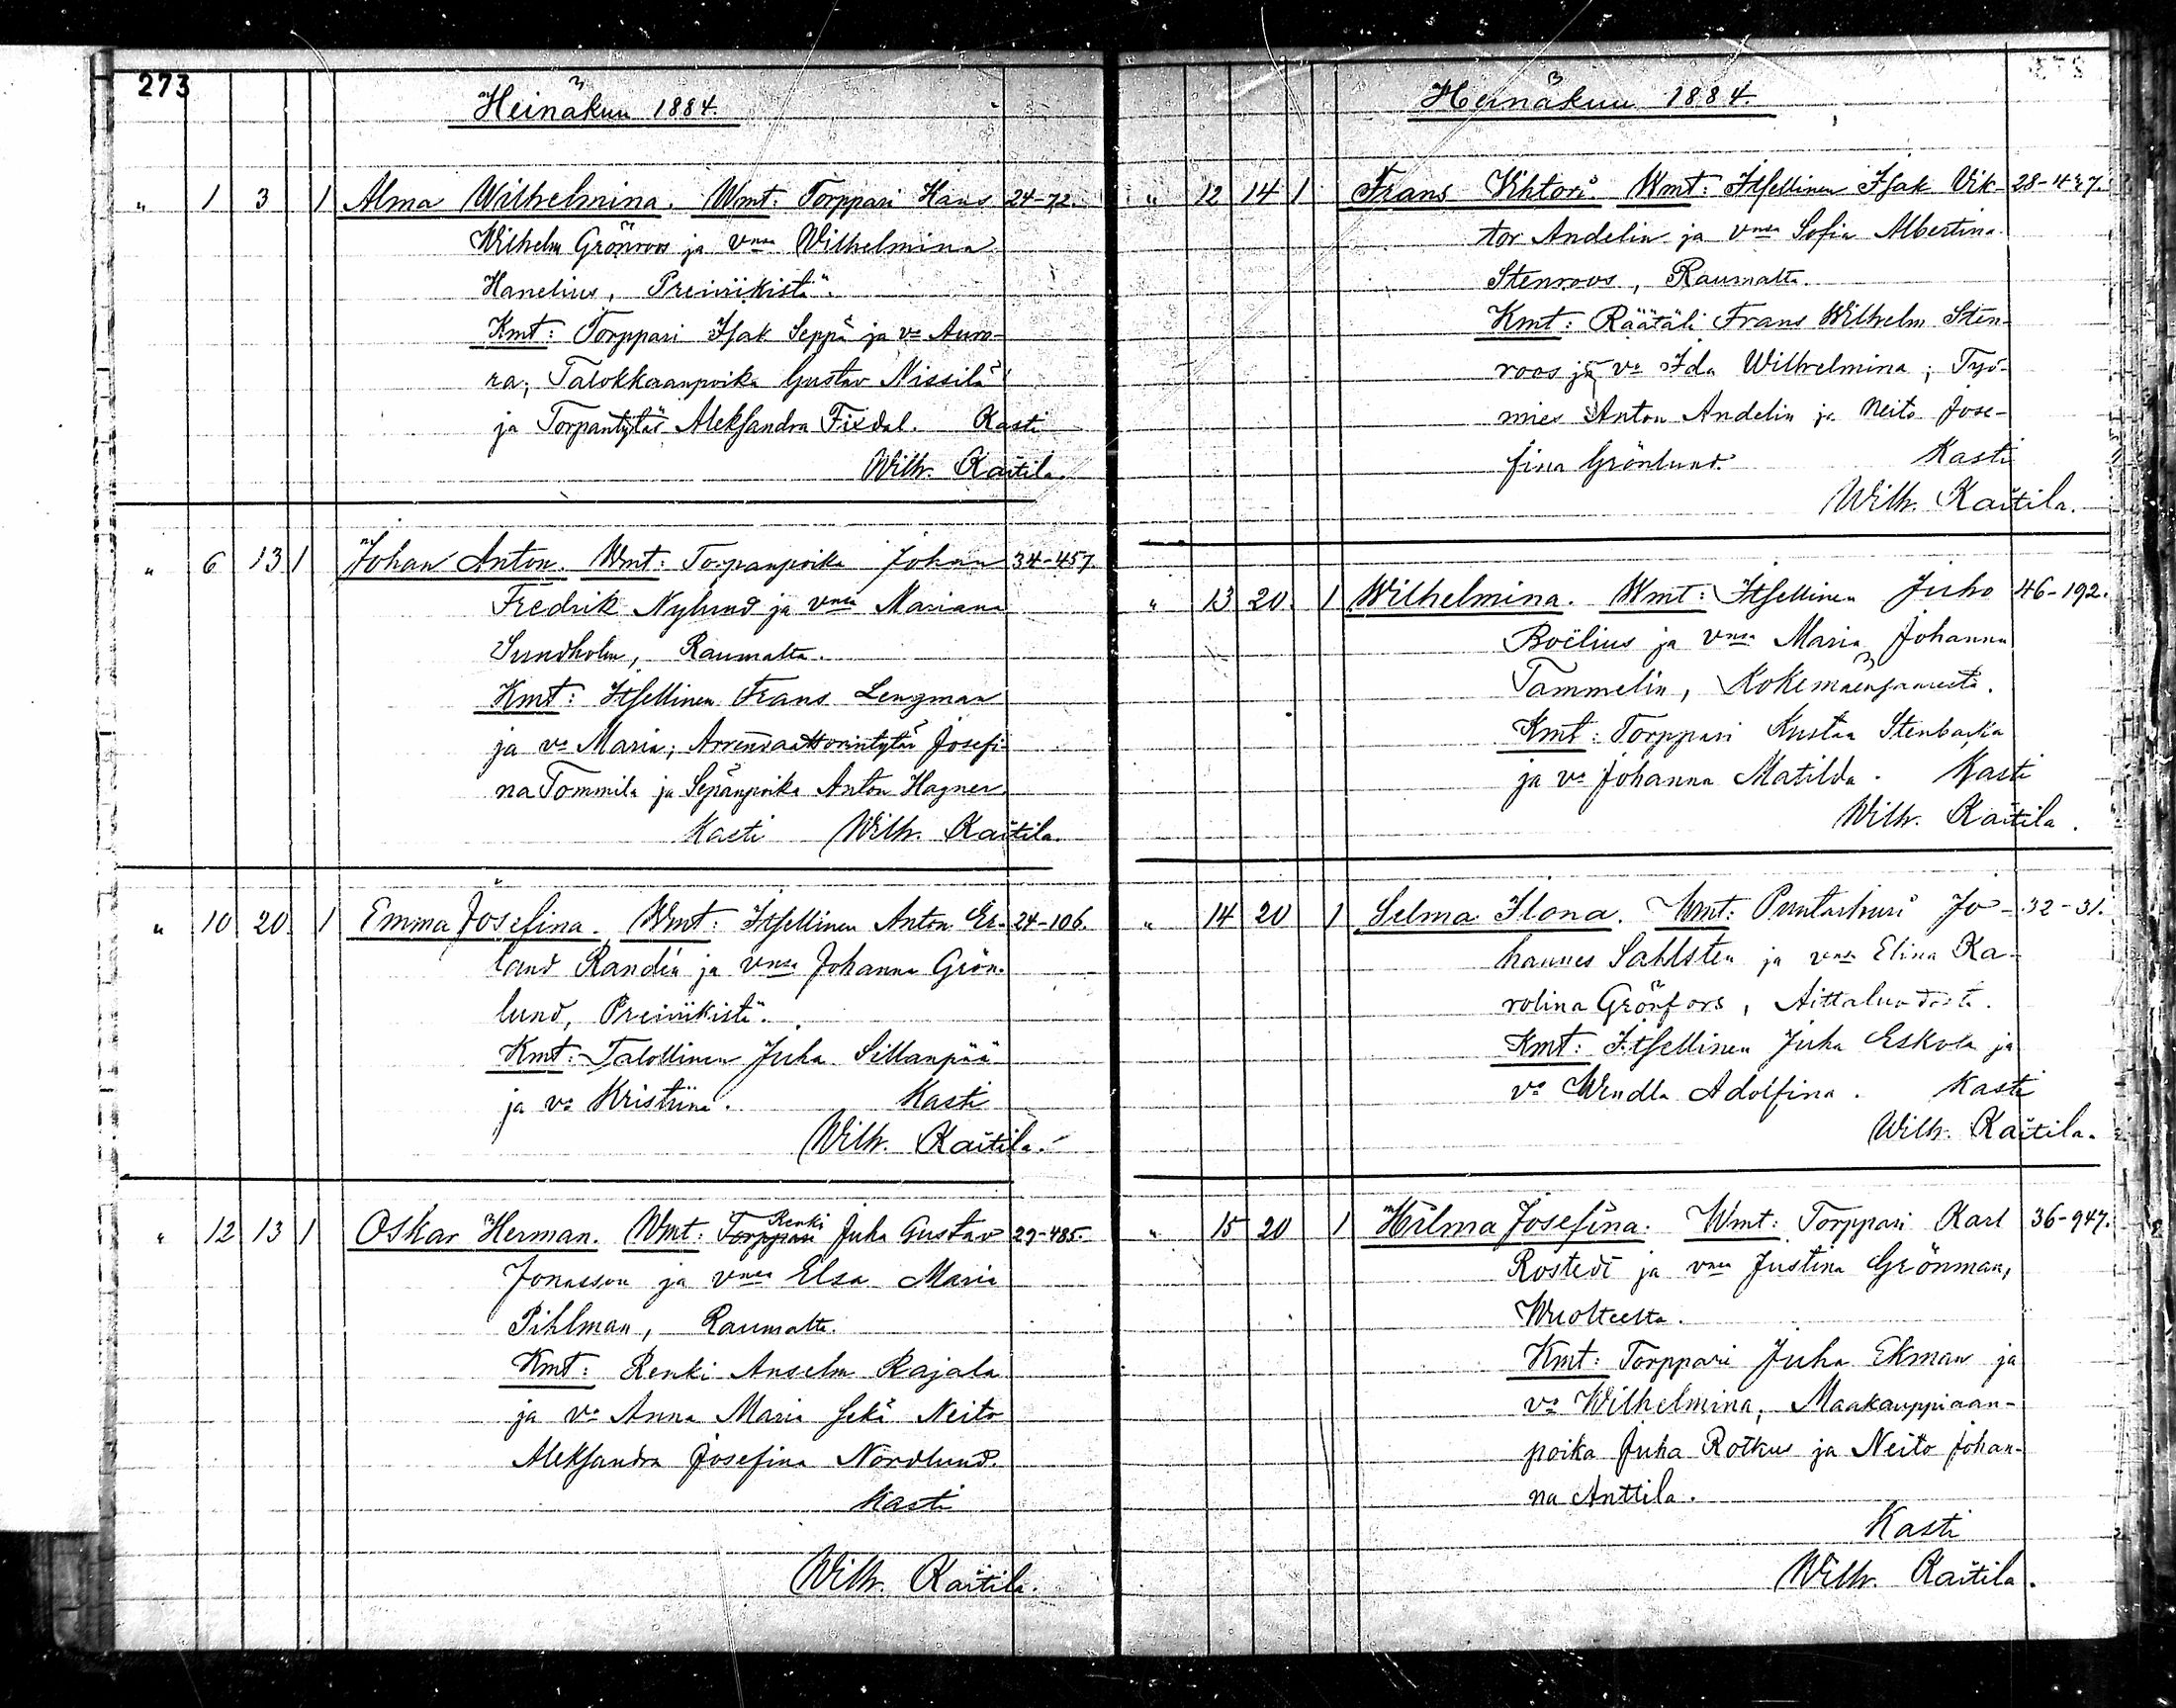 273
Heinäkuu 1884.
" 1 3 1 Alma Wilhelmina. Wmt: Torppari Hans 24-72.
Wilhelm Grönroos ja vnsa Wilhelmina
Hanelius, Preiviikistä.
Kmt: Torppari Isak Seppä ja va Auro-
ra; Talokkaanpoika Gustav Nissilä
ja Torpantytär Aleksandra Fixdal. Kasti
Wilh. Kaitila.
" 6 13 1 Johan Anton. Wmt: Torpanpoika Johan 34-457.
Fredrik Nylund ja vnsa Mariana
Sundholm, Raumalta.
Kmt: Itsellinen Frans Lengman
ja va Maria; Arrendaattorintytär Josefi-
na Tommila ja Sepänpoika Anton Hagner
Kasti Wilh. Kaitila.
" 10 20 1 Emma Josefina. Wmt: Itsellinen Anton Er- 24-106.
land Randén ja vnsa Johanna Grön-
lund, Preiviikistä.
Kmt: Talollinen Juha Sillanpää
ja va Kristiina. Kasti
Wilh. Kaitila.
" 12 13 1 Oskar Herman. Wmt: Torppari Renki Juha Gustav 29-485.
Jonasson ja vnsa Elsa Maria
Pihlman, Raumalta.
Kmt: Renki Anselm Rajala
ja va Anna Maria sekä Neito
Aleksandra Josefina Nordlund.
Kasti
Wilh. Kaitila.
Heinäkuu 1884.
" 12 14 1 Frans Vihtori. Wmt: Itsellinen Isak Vik- 28-427.
tor Andelin ja vnsa Sofia Albertina
Stenroos, Raumalta.
Kmt: Räätäli Frans Wilhelm Sten-
roos ja va Ida Wilhelmina; Työ-
mies Anton Andelin ja Neito Jose-
fina Grönlund. Kasti
Wilh. Kaitila.
" 13 20 1 Wilhelmina. Wmt: Itsellinen Juho 46-192.
Boëlius ja vnsa Maria Johanna
Tammelin, Kokemäensaaresta.
Kmt: Torppari Kustaa Stenbacka
ja va Johanna Matilda. Kasti
Wilh. Kaitila.
" 14 20 1 Selma Ilona. Wmt: Puutarhuri Jo- 32-31.
hannes Sahlstén ja vnsa Elina Ka-
rolina Grönfors, Aittaluodosta.
Kmt: Itsellinen Juha Eskola ja
va Wendla Adolfina. Kasti
Wilh. Kaitila.
" 15 20 1 Hilma Josefina. Wmt: Torppari Karl 36-947.
Rostedt ja vnsa Justina Grönman,
Wuolteelta.
Kmt: Torppari Juha Ekman ja
va Wilhelmina; Maakauppiaan-
poika Juha Rotkus ja Neito Johan-
na Anttila.
Kasti
Wilh. Kaitila.